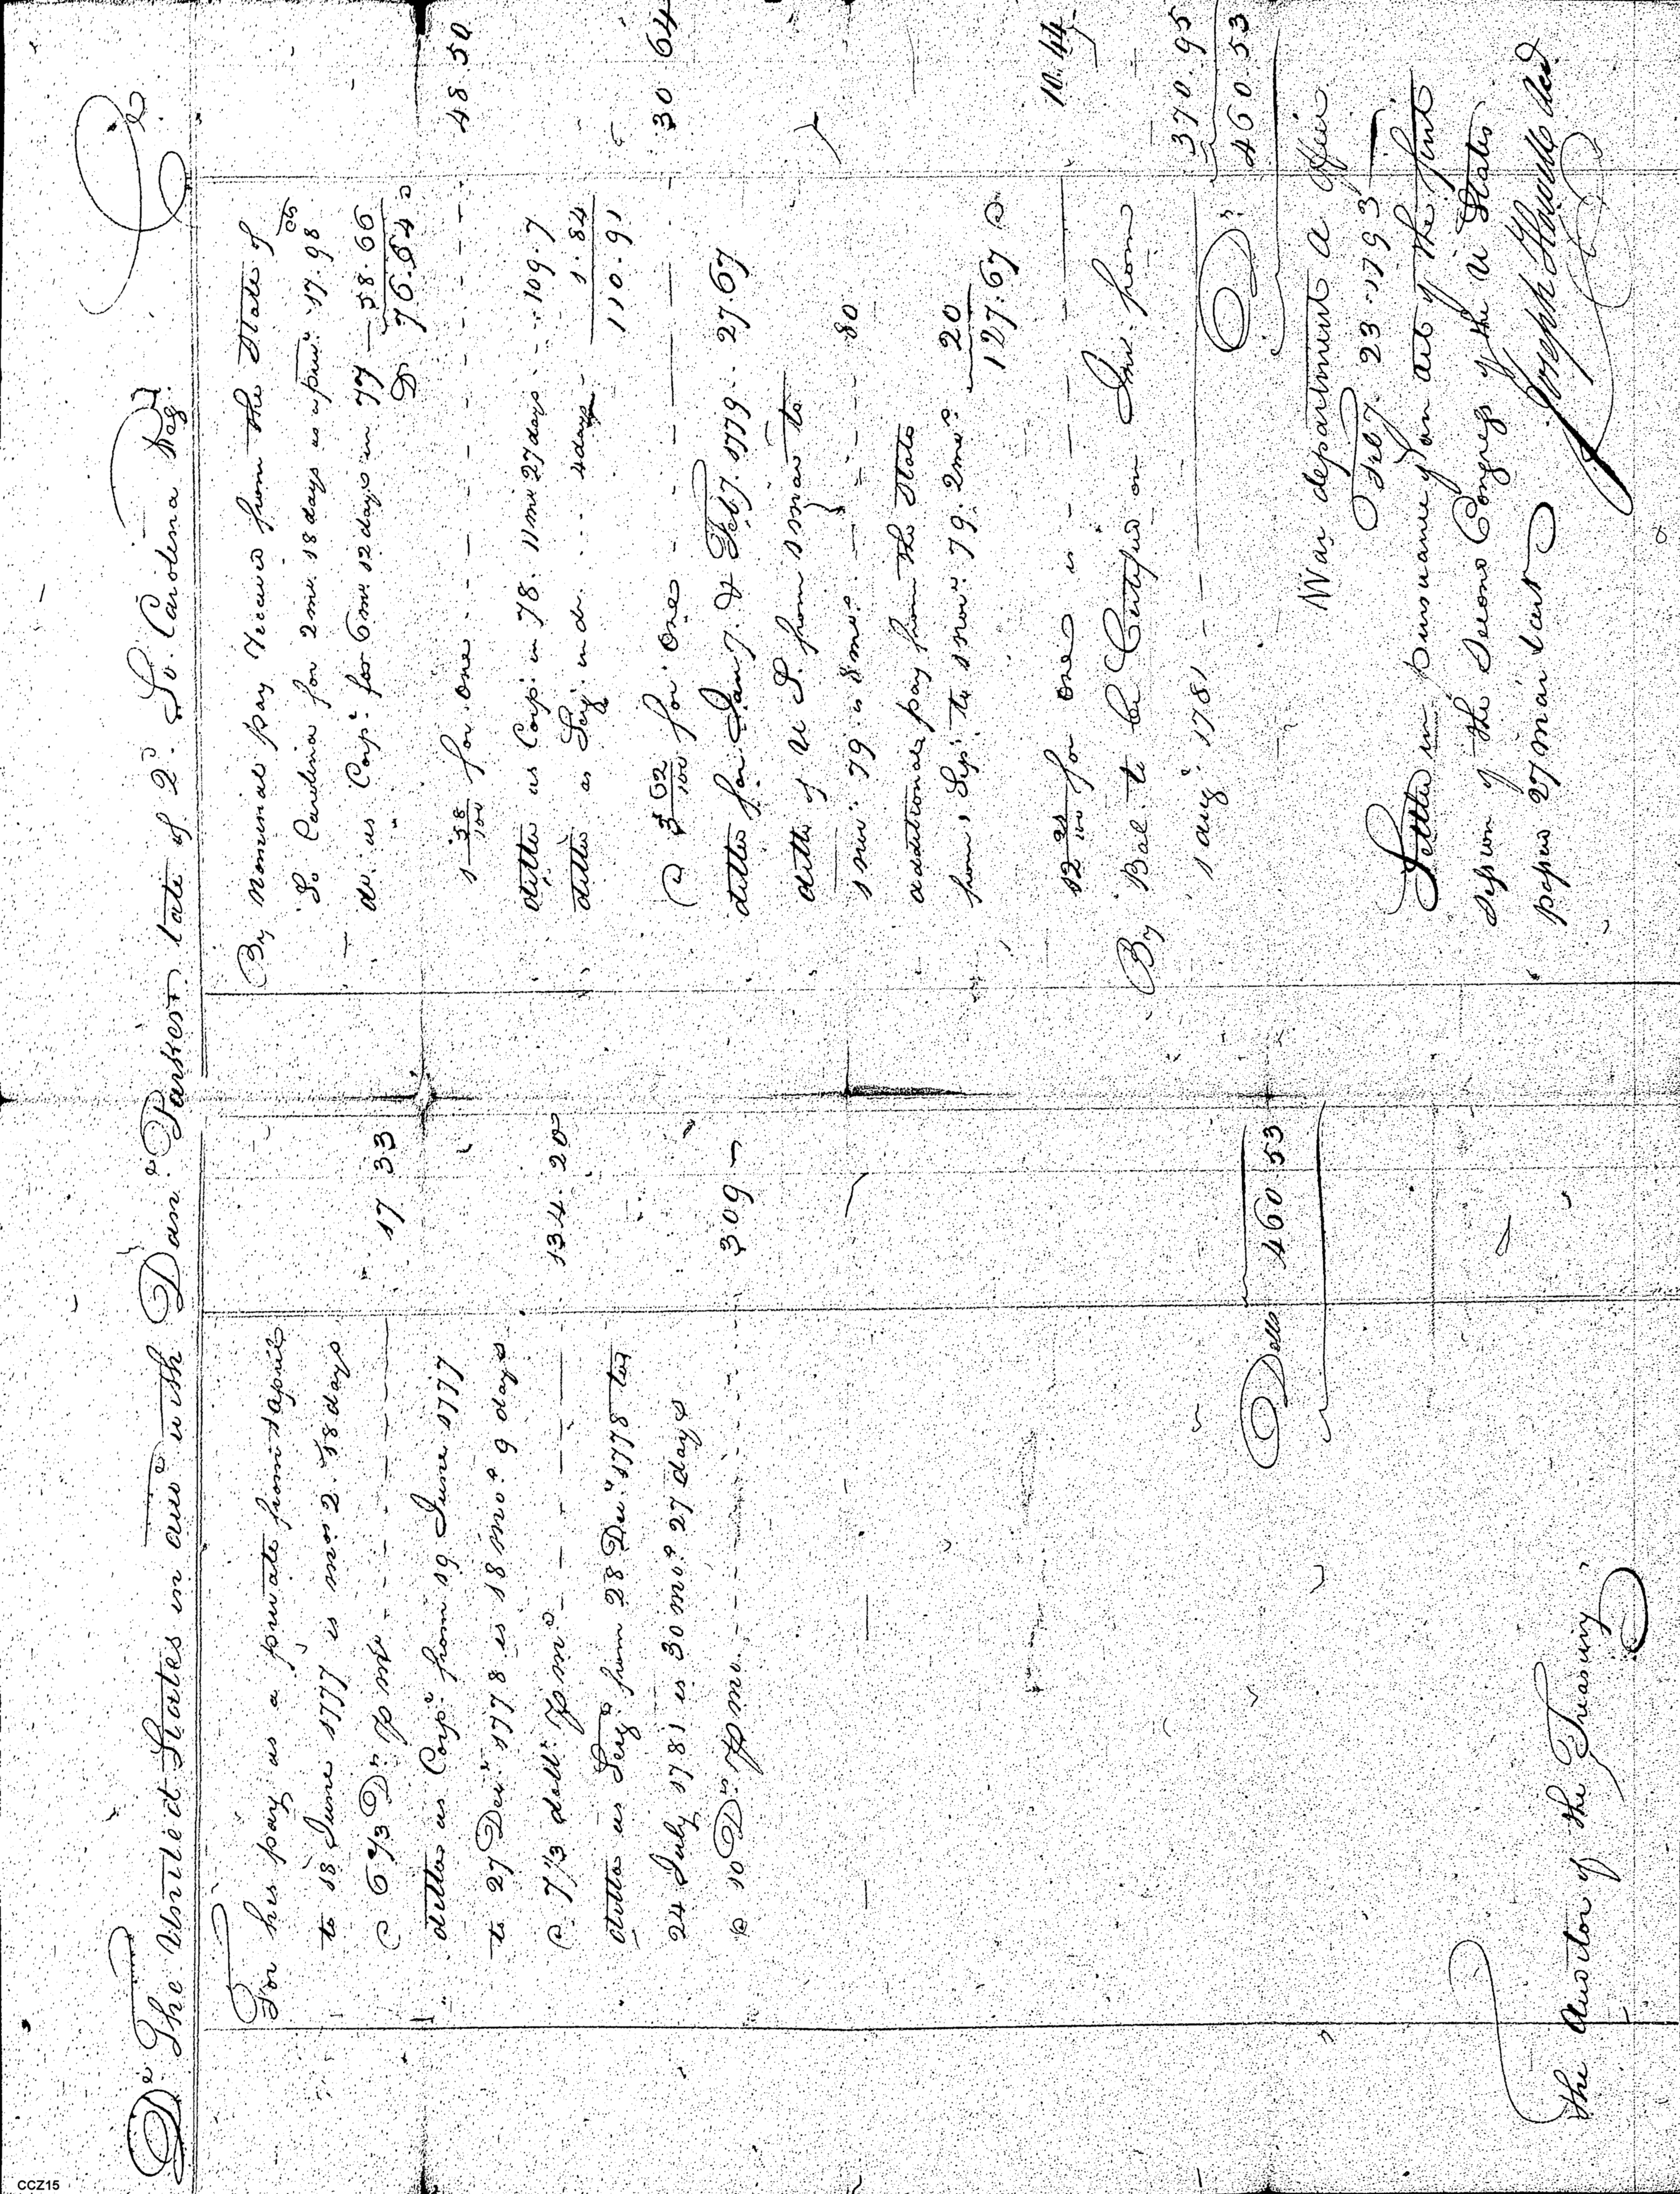 Dr. The United States in acco. with Danl. Parker late of 2d. So. Carolina Reg. Cr
For his pay as a private from 1 april
to 18 June 1777 is mos 2. 18 days
@ 6 2/3 Drs. ⅌ mo - - - - 17 33
dittos as Corpl. from 19 June 1777
to 27 Decr. 1778 is 18 mos. 9 days
@ 7 1/3 dolls. ⅌ mo. - - - 134. 20
ditto as Sergt. from 28 Decr. 1778 to
24 July 1781 is 30 mos. 27 days
@ 10 Drs. ⅌ mo. - - - - 309 -
Dolls 460 53
The Auditor of the Treasury
By Nomimal pay received from the State of
So Carolina for 2 mos. 18 days as a priv. 17. 98
do. as Corpl. for 6 mos. 12 days in 77 - 58 66
D 76. 64 @
1 58/100 for one - - - - - - - 48. 50
ditto as Corpl. in 78. 11 mos 27 days - - 109. 7
ditto as Sergt. in do. - - - 4 days - 1. 84
110. 91
@ 3 62/100 for One - - - - - 30 64
ditto for Jany. & Feby. 1779 - - 27. 67
ditto of U S. from 1 mar to
1 nov. 79 is 8 mos. - - - - - 80
additional pay from the State
from 1 Sept. to 1 nov. 79. 2 mos. 20
127. 67 @
12 21/100 for one is - - - - - 10. 44
By Bal. to be Certified on Int. from
1 augt. 1781 - - - - - Drs. 370. 95
460. 53
War department a Office
Feby. 23. 1793
Settled in pursuance of an act of the first
Session of the Second Congress of the U States
passed 27 Mar last
Joseph Howell
CCZ15